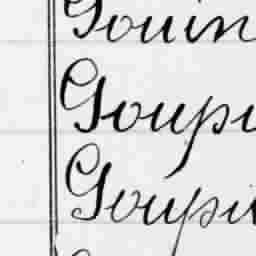 Gouin
Goupi
Goupi